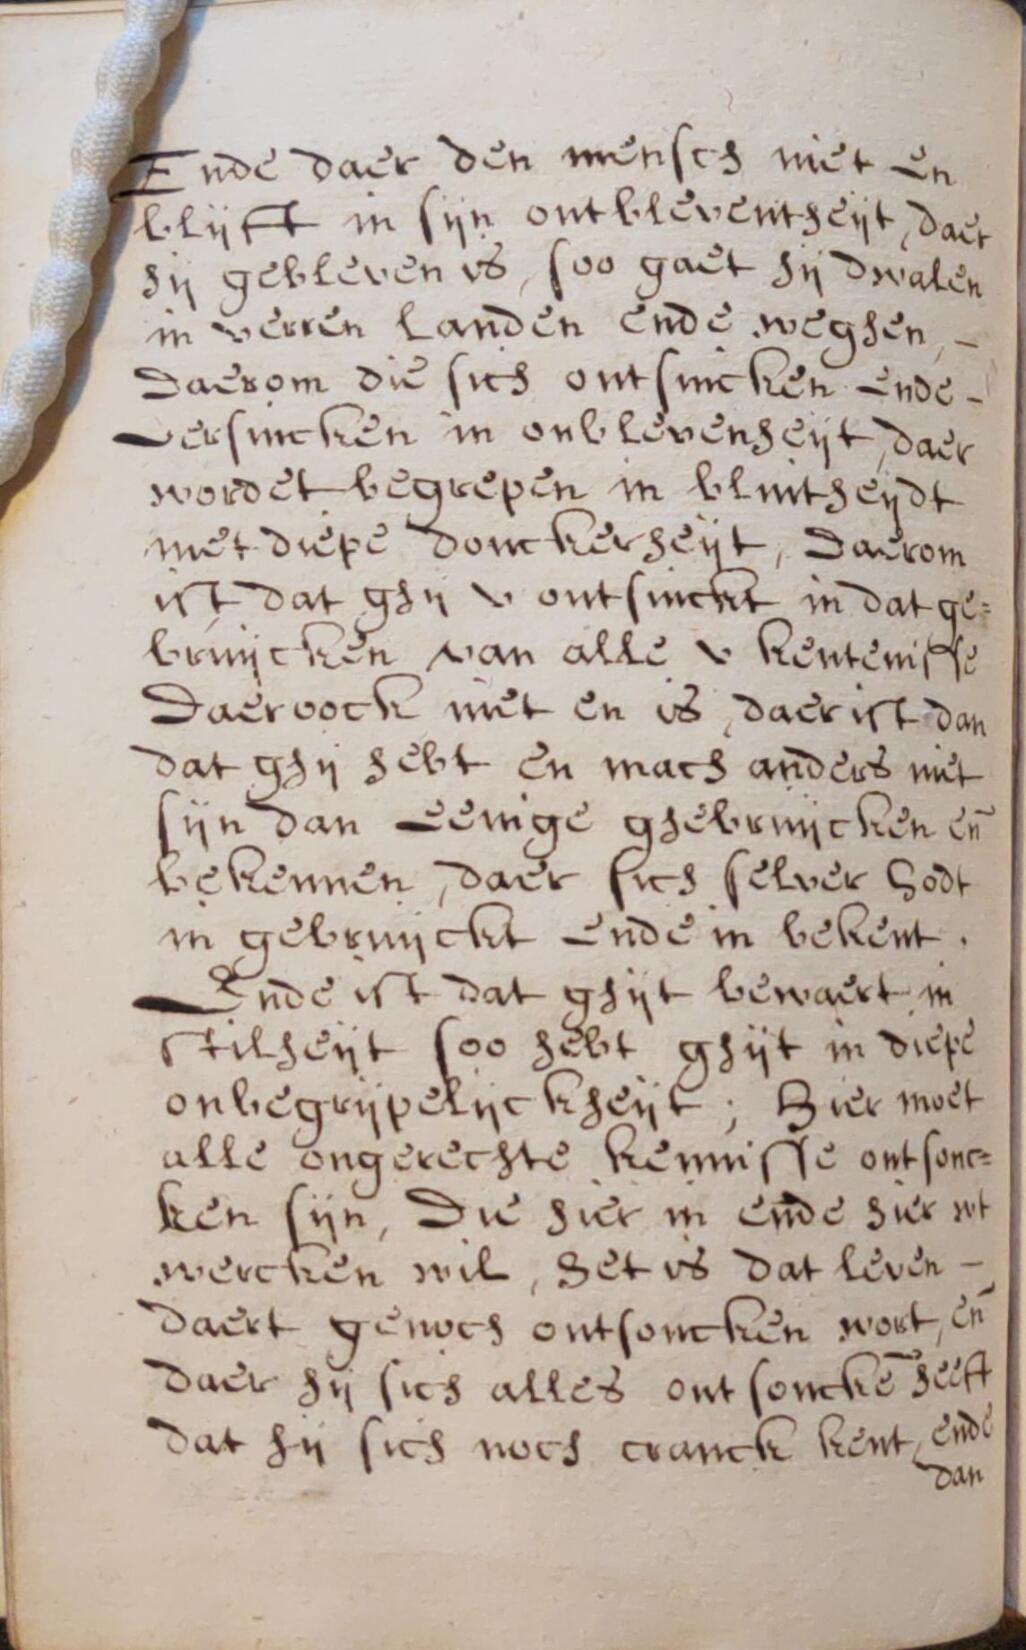 Ende daer den mensch niet en
blijft in sijn ontbleventheijt, daer
hij gebleven is, soo gaet hij dwalen
in verren landen ende weghen, –
Daerom die sich ontsincken ende –
versincken in onblevenheijt, daer
wordet begrepen in blintheijdt
met diepe donckerheijt, Daerom
ist dat ghij v ontsinckt in dat ge=
bruijcken van alle v kentenisse
Daer oock niet en is, daer ist dan
dat ghij hebt en mach anders niet
sijn dan eenige ghebruijcken en̄
bekennen, daer sich selver Godt
in gebruijckt ende in bekent.
Ende ist dat ghijt bewaert in
stilheijt soo hebt ghijt in diepe
onbegrijpelijckheijt; Hier moet
alle ongerechte kennisse ontsonc=
ken sijn, Die hier in ende hier wt
wercken wil, Het is dat leven –
daert genoch ontsoncken wort, en̄
daer hij sich alles ontsonckē heeft
dat hij sich noch cranck kent, ende
dan